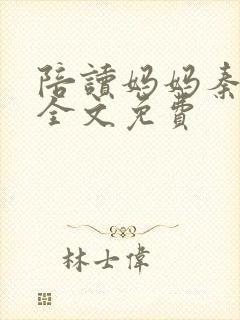 陪讀媽媽秦
全文免費
林士偉